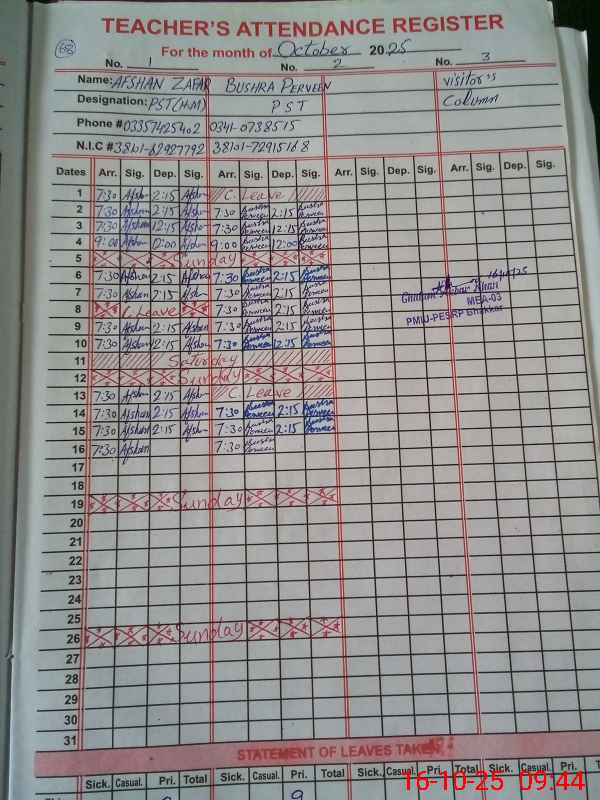 68
TEACHER'S ATTENDANCE REGISTER
For the month of October 2025
No. 1 No. 2 No. 3
Name: AFSHAN ZAFAR BUSHRA PERVEEN visitor's
Designation: PST(H.M) PST Column
Phone # 03357425402 0341-0738515
N.I.C # 38101-82927792 38101-72915168
Dates Arr. Sig. Dep. Sig. Arr. Sig. Dep. Sig. Arr. Sig. Dep. Sig. Arr. Sig. Dep. Sig.
1 7:30 Afshan 2:15 Afshan C. Leave
2 7:30 Afshan 2:15 Afshan 7:30 Bushra Perveen 2:15 Bushra Perveen
3 7:30 Afshan 12:15 Afshan 7:30 Bushra Perveen 12:15 Bushra Perveen
4 9:00 Afshan 12:00 Afshan 9:00 Bushra Perveen 12:00 Bushra Perveen
5 Sunday
6 7:30 Afshan 2:15 Afshan 7:30 Bushra Perveen 2:15 Bushra Perveen
7 7:30 Afshan 2:15 Afshan 7:30 Bushra Perveen 2:15 Bushra Perveen
8 C. Leave 7:30 Bushra Perveen 2:15 Bushra Perveen
9 7:30 Afshan 2:15 Afshan 7:30 Bushra Perveen 2:15 Bushra Perveen
10 7:30 Afshan 2:15 Afshan 7:30 Bushra Perveen 12:15 Bushra Perveen
11 Saturday
12 Sunday
13 7:30 Afshan 2:15 Afshan C. Leave
14 7:30 Afshan 2:15 Afshan 7:30 Bushra Perveen 2:15 Bushra Perveen
15 7:30 Afshan 2:15 Afshan 7:30 Bushra Perveen 2:15 Bushra Perveen
16 7:30 Afshan 7:30 Bushra Perveen
17
18
19 Sunday
20
21
22
23
24
25
26 Sunday
27
28
29
30
31
16/10/25
MEA-03
PMIU-PESRP Bhakkar
STATEMENT OF LEAVES TAKEN
Sick. Casual. Pri. Total Sick. Casual. Pri. Total Sick. Casual. Pri. Total Sick.
16-10-25 09:44